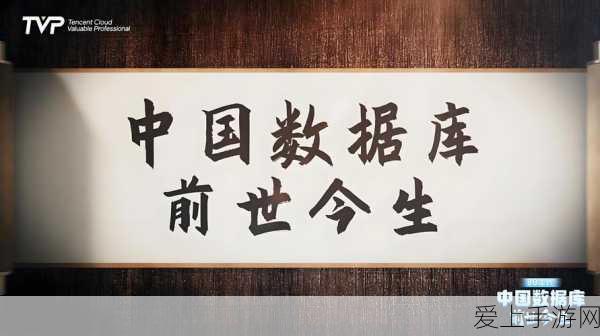 TVP Tencent Cloud
Valuable Professional
中国数据库
前世今生
中国数据库
前世今生
爱上手游网